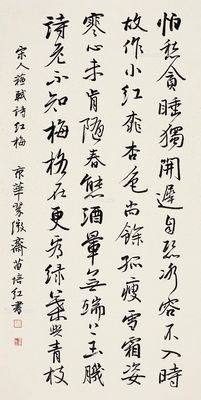 怕愁貪睡獨開遲自恐冰容不入時
故作小紅桃杏色尚餘孤瘦雪霜姿
寒心未肯隨春態酒暈無端上玉肌
詩老不知梅格在更看綠葉與青枝
宋人蘇軾詩紅梅 京華翠微齋苗培紅書